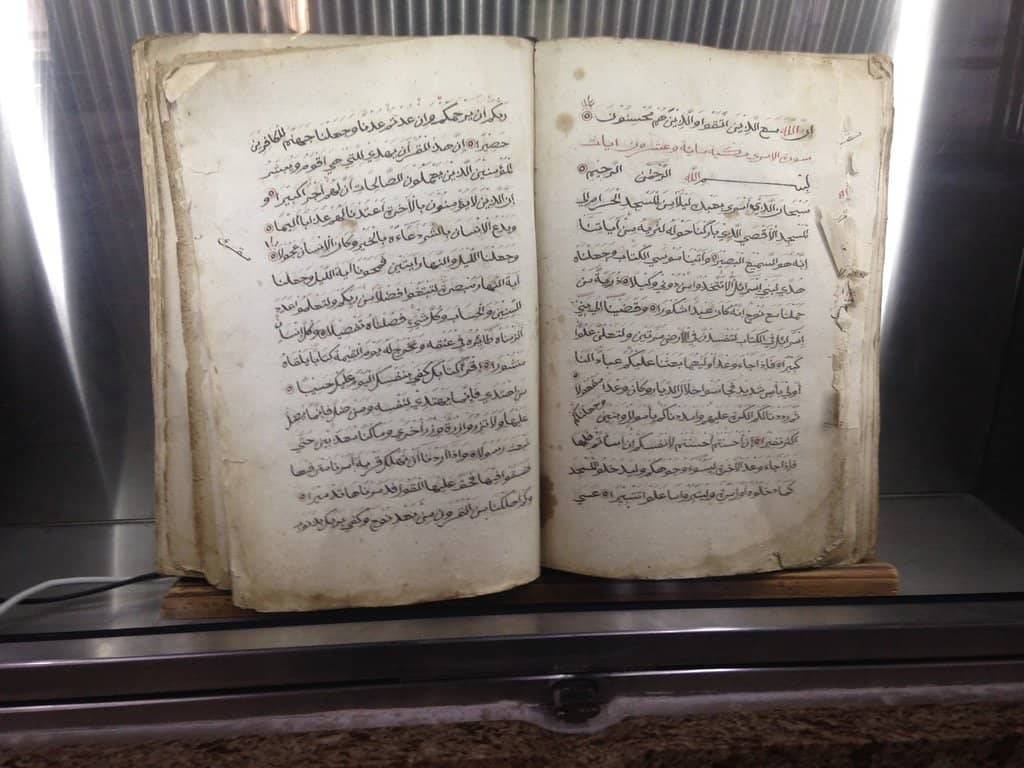 ان الله مع الذين اتقوا والذين هم محسنون
سورة الاسرى مكية مائة وعشرون ايات
بسم الله الرحمن الرحيم
سبحان الذي اسرى بعبده ليلا من المسجد الحرام الى
المسجد الاقصى الذي باركنا حوله لنريه من اياتنا
انه هو السميع البصير واتينا موسى الكتاب وجعلناه
هدى لبني اسرائل الا تتخذوا من دوني وكيلا ذرية من
حملنا مع نوح انه كان عبدا شكورا وقضينا الى بني
اسرائل في الكتاب لتفسدن في الارض مرتين ولتعلن علوا
كبيرا فاذا جاء وعد اوليهما بعثنا عليكم عبادا لنا
اولي باس شديد فجاسوا خلال الديار وكان وعدا مفعولا
ثم رددنا لكم الكرة عليهم وامددناكم باموال وبنين وجعلنكم
اكثر نفيرا ان احسنتم احسنتم لانفسكم وان اساتم فلها
فاذا جاء وعد الاخرة ليسوءوا وجوهكم وليدخلوا المسجد
كما دخلوه اول مرة وليتبروا ما علوا تتبيرا عسى
ربكم ان يرحمكم وان عدتم عدنا وجعلنا جهنم للكافرين
حصيرا ان هذا القرآن يهدي للتي هي اقوم ويبشر
المؤمنين الذين يعملون الصالحات ان لهم اجرا كبيرا و
ان الذين لا يؤمنون بالآخرة اعتدنا لهم عذابا اليما
ويدع الانسان بالشر دعاءه بالخير وكان الانسان عجولا
وجعلنا الليل والنهار ايتين فمحونا آية الليل وجعلنا
آية النهار مبصرة لتبتغوا فضلا من ربكم ولتعلموا عدد
السنين والحساب وكل شيء فصلناه تفصيلا وكل انسان
الزمناه طائره في عنقه ونخرج له يوم القيمة كتابا يلقاه
منشورا اقرأ كتابك كفى بنفسك اليوم عليك حسيبا
من اهتدى فانما يهتدي لنفسه ومن ضل فانما يضل
عليها ولا تزر وازرة وزر اخرى وما كنا معذبين حتى
نبعث رسولا واذا اردنا ان نهلك قرية امرنا مترفيها
ففسقوا فيها فحق عليها القول فدمرناها تدميرا
وكم اهلكنا من القرون من بعد نوح وكفى بربك بذنوب